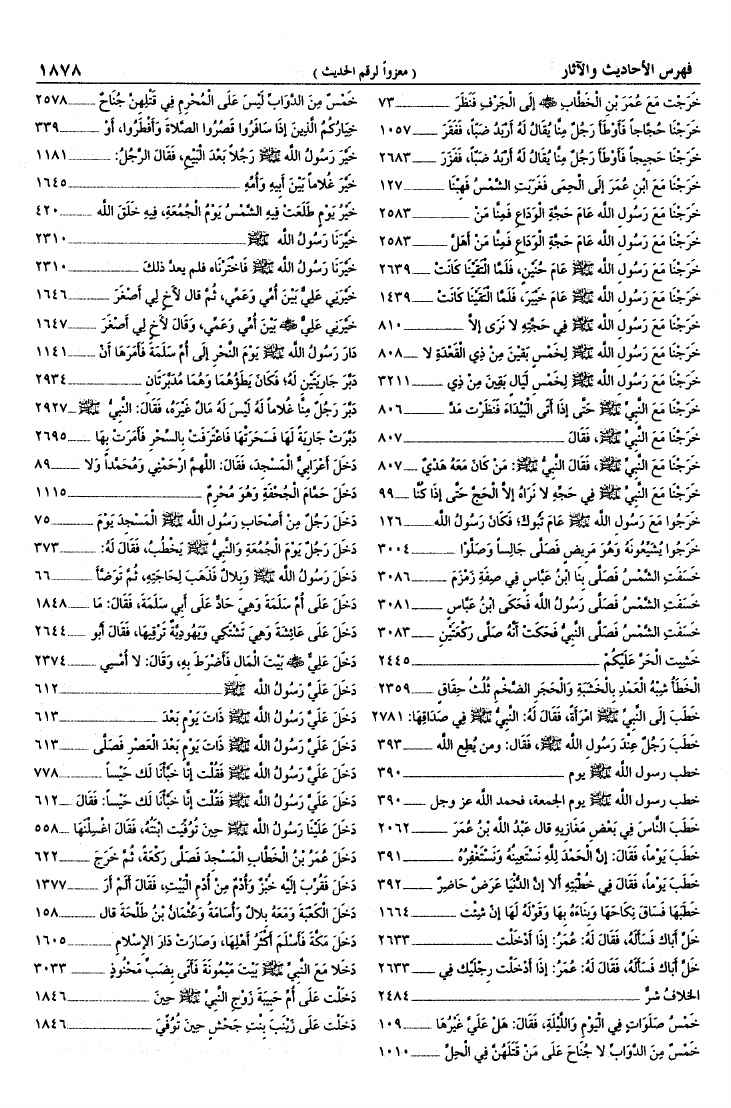 فهرس الأحاديث والآثار ( معزواً لرقم الحديث ) ١٨٧٨
خَرَجْت مَعَ عُمَرَ بْنِ الْخَطَّابِ ﷺ إِلَى الْجَرْفِ فَنَظَرَ ٧٣
خَرَجْنَا حُجَّاجاً فَأَوْطَأَ رَجُلٌ مِنَّا يُقَالُ لَهُ أَرْبَدُ ضَبًّا، فَفَقَرَ ١٠٥٧
خَرَجْنَا حَجِيجاً فَأَوْطَأَ رَجُلٌ مِنَّا يُقَالُ لَهُ أَرْبَدُ ضَبًّا، فَفَزَرَ ٢٦٨٣
خَرَجْنَا مَعَ ابْنِ عُمَرَ إِلَى الْحِمَى فَغَرَبَتِ الشَّمْسُ فَهِبْنَا ١٢٧
خَرَجْنَا مَعَ رَسُولِ اللهِ عَامَ حَجَّةِ الْوَدَاعِ فَمِنَّا مَنْ ٢٥٨٣
خَرَجْنَا مَعَ رَسُولِ اللهِ ﷺ عَامَ حَجَّةِ الْوَدَاعِ فَمِنَّا مَنْ أَهَلَّ ٢٥٨٣
خَرَجْنَا مَعَ رَسُولِ اللهِ ﷺ عَامَ حُنَيْنٍ، فَلَمَّا الْتَقَيْنَا كَانَتْ ٢٦٣٩
خَرَجْنَا مَعَ رَسُولِ اللهِ ﷺ عَامَ خَيْبَرَ، فَلَمَّا الْتَقَيْنَا كَانَتْ ١٤٣٩
خَرَجْنَا مَعَ رَسُولِ اللهِ ﷺ فِي حَجَّتِهِ لَا نَرَى إلاَّ ٨١٠
خَرَجْنَا مَعَ رَسُولِ اللهِ ﷺ لِخَمْسٍ بَقِينَ مِنْ ذِي الْقَعْدَةِ لا ٨٠٨
خَرَجْنَا مَعَ رَسُولِ اللهِ ﷺ لِخَمْسِ لَيَالٍ بَقِينَ مِنْ ذِي ٣٢١١
خَرَجْنَا مَعَ النَّبِيِّ ﷺ حَتَّى إِذَا أَتَى الْبَيْدَاءَ فَنَظَرْت مَدَّ ٨٠٦
خَرَجْنَا مَعَ النَّبِيِّ ﷺ، فَقَالَ ٨٠٧
خَرَجْنَا مَعَ النَّبِيِّ ﷺ، فَقَالَ النَّبِيُّ ﷺ: مَنْ كَانَ مَعَهُ هَدْيٌ ٨٠٧
خَرَجْنَا مَعَ النَّبِيِّ ﷺ فِي حَجِّهِ لَا نَرَاهُ إلاَّ الْحَجَّ حَتَّى إِذَا كُنَّا ٩٩
خَرَجُوا مَعَ رَسُولِ اللهِ ﷺ عَامَ تَبُوكَ؛ فَكَانَ رَسُولُ اللهِ ١٢٦
خَرَجُوا يُشَيِّعُونَهُ وَهُوَ مَرِيضٌ فَصَلَّى جَالِساً وَصَلَّوْا ٣٠٠٤
خَسَفَتِ الشَّمْسُ فَصَلَّى بِنَا ابْنُ عَبَّاسٍ فِي صِفَةِ زَمْزَمَ ٣٠٨٦
خَسَفَتِ الشَّمْسُ فَصَلَّى رَسُولُ اللهِ فَحَكَى ابْنُ عَبَّاسٍ ٣٠٨١
خَسَفَتِ الشَّمْسُ فَصَلَّى النَّبِيُّ فَحَكَتْ أَنَّهُ صَلَّى رَكْعَتَيْنِ ٣٠٨٣
خَشِيت الْحَرَّ عَلَيْكُمْ ٢٤٤٥
الْخَطَأُ شِبْهُ الْعَمْدِ بِالْخَشَبَةِ وَالْحَجَرِ الضَّخْمِ ثُلُثُ حِقَاقٍ ٢٣٥٩
خَطَبَ إِلَى النَّبِيِّ ﷺ امْرَأَةً، فَقَالَ لَهُ: النَّبِيُّ ﷺ فِي صَدَاقِهَا: ٢٧٨١
خَطَبَ رَجُلٌ عِنْدَ رَسُولِ اللهِ ﷺ، فَقَالَ: ومن يُطِعِ اللهَ ٣٩٣
خطب رسول الله ﷺ يوم ٣٩٠
خطب رسول الله ﷺ يوم الجمعة، فحمد الله عز وجل ٣٩٠
خَطَبَ النَّاسَ فِي بَعْضِ مَغَازِيهِ قال عَبْدُ اللهِ بْنُ عُمَرَ ٢٠٦٢
خَطَبَ يَوْماً، فَقَالَ: إِنَّ الْحَمْدَ لِلَّهِ نَسْتَعِينُهُ وَنَسْتَغْفِرُهُ ٣٩١
خَطَبَ يَوْماً، فَقَالَ فِي خُطْبَتِهِ أَلا إنَّ الدُّنْيَا عَرَضٌ حَاضِرٌ ٣٩٢
خَطَبَهَا فَسَاقَ نِكَاحَهَا وَبِنَاءَهُ بِهَا وَقَوْلَهُ لَهَا إنْ شِئْتِ ١٦٦٤
خَلَّ أَبَاك فَسَأَلَهُ، فَقَالَ لَهُ: عُمَرُ: إِذَا أَدْخَلْت ٢٦٣٣
خَلَّ أَبَاك فَسَأَلَهُ، فَقَالَ لَهُ: عُمَرُ: إِذَا أَدْخَلْت رِجْلَيْك فِي ٢٦٣٣
الخلافُ شرٌّ ٢٤٨٤
خَمْسُ صَلَوَاتٍ فِي الْيَوْمِ وَاللَّيْلَةِ، فَقَالَ: هَلْ عَلَيَّ غَيْرُهَا ١٠٩
خَمْسٌ مِنَ الدَّوَابِّ لا جُنَاحَ عَلَى مَنْ قَتَلَهُنَّ فِي الْحِلِّ ١٠١٠
خَمْسٌ مِنَ الدَّوَابِّ لَيْسَ عَلَى الْمُحْرِمِ فِي قَتْلِهِنَّ جُنَاحٌ ٢٥٧٨
خِيَارُكُمُ الَّذِينَ إِذَا سَافَرُوا قَصَرُوا الصَّلاةَ وَأَفْطَرُوا، أَوْ ٣٣٩
خَيَّرَ رَسُولُ اللهِ ﷺ رَجُلاً بَعْدَ الْبَيْعِ، فَقَالَ الرَّجُلُ: ١١٨١
خَيَّرَ غُلاماً بَيْنَ أَبِيهِ وَأُمِّهِ ١٦٤٥
خَيْرُ يَوْمٍ طَلَعَتْ فِيهِ الشَّمْسُ يَوْمُ الْجُمُعَةِ، فِيهِ خَلَقَ اللهُ ٤٢٠
خَيَّرَنَا رَسُولُ اللهِ ﷺ ٢٣١٠
خَيَّرَنَا رَسُولُ اللهِ ﷺ فَاخْتَرْنَاه فلم يعدَّ ذلك ٢٣١٠
خَيَّرَنِي عَلِيٌّ بَيْنَ أُمِّي وَعَمِّي، ثُمَّ قال لأَخٍ لِي أَصْغَرَ ١٦٤٦
خَيَّرَنِي عَلِيٌّ ﷺ بَيْنَ أُمِّي وَعَمِّي، وَقَالَ لأَخٍ لِي أَصْغَرَ ١٦٤٧
دَارَ رَسُولُ اللهِ ﷺ يَوْمَ النَّحْرِ إِلَى أُمِّ سَلَمَةَ فَأَمَرَهَا أنْ ١١٤١
دَبَّرَ جَارِيَتَيْنِ لَهُ؛ فَكَانَ يَطَؤُهُمَا وَهُمَا مُدَبَّرَتَانِ ٢٩٣٤
دَبَّرَ رَجُلٌ مِنَّا غُلاماً لَهُ لَيْسَ لَهُ مَالٌ غَيْرُهُ، فَقَالَ: النَّبِيُّ ﷺ ٢٩٢٧
دَبَّرَتْ جَارِيَةً لَهَا فَسَحَرَتْهَا فَاعْتَرَفَتْ بِالسِّحْرِ فَأَمَرَتْ بِهَا ٢٦٩٥
دَخَلَ أَعْرَابِيٌّ الْمَسْجِدَ، فَقَالَ: اللهُمَّ ارْحَمْنِي وَمُحَمَّداً وَلَا ٨٩
دَخَلَ حَمَّامَ الْجُحْفَةِ وَهُوَ مُحْرِمٌ ١١١٥
دَخَلَ رَجُلٌ مِنْ أَصْحَابِ رَسُولِ اللهِ ﷺ الْمَسْجِدَ يَوْمَ ٧٥
دَخَلَ رَجُلٌ يَوْمَ الْجُمُعَةِ وَالنَّبِيُّ ﷺ يَخْطُبُ، فَقَالَ لَهُ: ٣٧٣
دَخَلَ رَسُولُ اللهِ ﷺ وَبِلالٌ فَذَهَبَ لِحَاجَتِهِ، ثُمَّ تَوَضَّأَ ٦٦
دَخَلَ عَلَى أُمِّ سَلَمَةَ وَهِيَ حَادٌّ عَلَى أَبِي سَلَمَةَ، فَقَالَ: مَا ١٨٤٨
دَخَلَ عَلَى عَائِشَةَ وَهِيَ تَشْتَكِي وَيَهُودِيَّةٌ تَرْقِيهَا، فَقَالَ أَبُو ٢٦٤٤
دَخَلَ عَلِيٌّ ﷺ بَيْتَ الْمَالِ فَأَضْرَطَ بِهِ، وَقَالَ: لا أُمْسِي ٢٣٧٤
دَخَلَ عَلَيَّ رَسُولُ اللهِ ﷺ ٦١٢
دَخَلَ عَلَيَّ رَسُولُ اللهِ ﷺ ذَاتَ يَوْمٍ بَعْدَ ٦١٣
دَخَلَ عَلَيَّ رَسُولُ اللهِ ﷺ ذَاتَ يَوْمٍ بَعْدَ الْعَصْرِ فَصَلَّى ٦١٣
دَخَلَ عَلَيَّ رَسُولُ اللهِ ﷺ فَقُلْت إِنَّا خَبَّأْنَا لَك حَيْساً ٧٧٨
دَخَلَ عَلَيَّ رَسُولُ اللهِ ﷺ فَقُلْت إِنَّا خَبَّأْنَا لَك حَيْساً: فَقَالَ ٦١٢
دَخَلَ عَلَيْنَا رَسُولُ اللهِ ﷺ حِينَ تُوُفِّيَت ابْنَتُهُ، فَقَالَ اغْسِلْنَهَا ٥٥٨
دَخَلَ عُمَرُ بْنُ الْخَطَّابِ الْمَسْجِدَ فَصَلَّى رَكْعَةً، ثُمَّ خَرَجَ ٦٢٢
دَخَلَ فَقُرِّبَ إِلَيْهِ خُبْزٌ وَأُدْمٌ مِنْ أُدْمِ الْبَيْتِ، فَقَالَ أَلَمْ أَرَ ١٣٧٧
دَخَلَ الْكَعْبَةَ وَمَعَهُ بِلالٌ وَأُسَامَةُ وَعُثْمَانُ بْنُ طَلْحَةَ قال ١٥٨
دَخَلَ مَكَّةَ فَأَسْلَمَ أَكْثَرُ أَهْلِهَا، وَصَارَتْ دَارَ الإِسْلامِ ١٦٠٥
دَخَلا مَعَ النَّبِيِّ ﷺ بَيْتَ مَيْمُونَةَ فَأُتِيَ بِضَبٍّ مَحْنُوذٍ ٣٠٣٣
دَخَلْت عَلَى أُمِّ حَبِيبَةَ زَوْجِ النَّبِيِّ ﷺ حِينَ ١٨٤٦
دَخَلْت عَلَى زَيْنَبَ بِنْتِ جَحْشٍ حِينَ تُوُفِّيَ ١٨٤٦